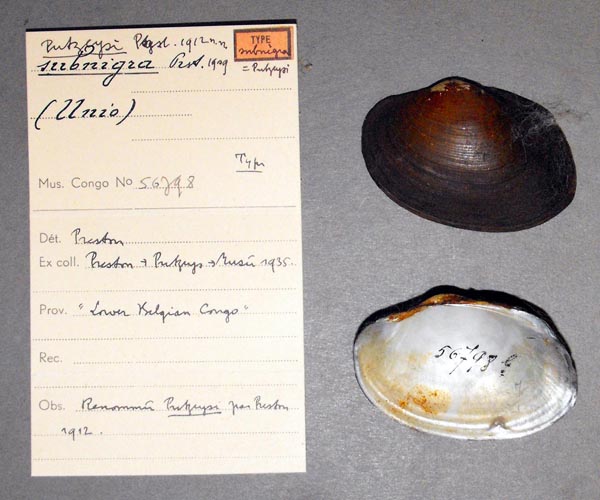 Putzeysi Prest. 1912 n.n.
subnigra Prst. 1909
TYPE
subnigra
= Putzeysi
(Unio)
Type
Mus. Congo No 56798
Dét. Preston
Ex coll. Preston → Putzeys → Musée 1935.
Prov. "Lower Belgian Congo"
Rec.
Obs. Renommée Putzeysi par Preston
1912.
56798